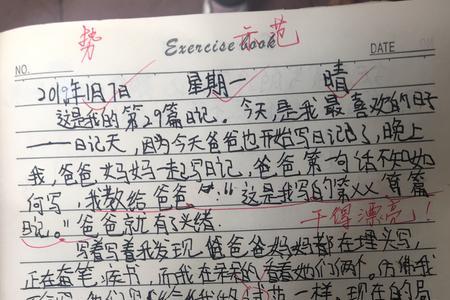 势 示范
Exercise book
NO. DATE
2019年1月7日 星期一 晴
这是我的第29篇日记。今天,是我最喜欢的日子
——日记天,因为今天爸爸也开始写日记了,晚上
我,爸爸,妈妈一起写日记,爸爸第一句话不知如
何写,我教给爸爸 “这是我写的第XX篇
日记。”爸爸就有了头绪。
干得漂亮!
写着写着我发现,爸爸妈妈都在埋头写,
正在奋笔疾书,而我在 看着她们两个。仿佛我
现在的局